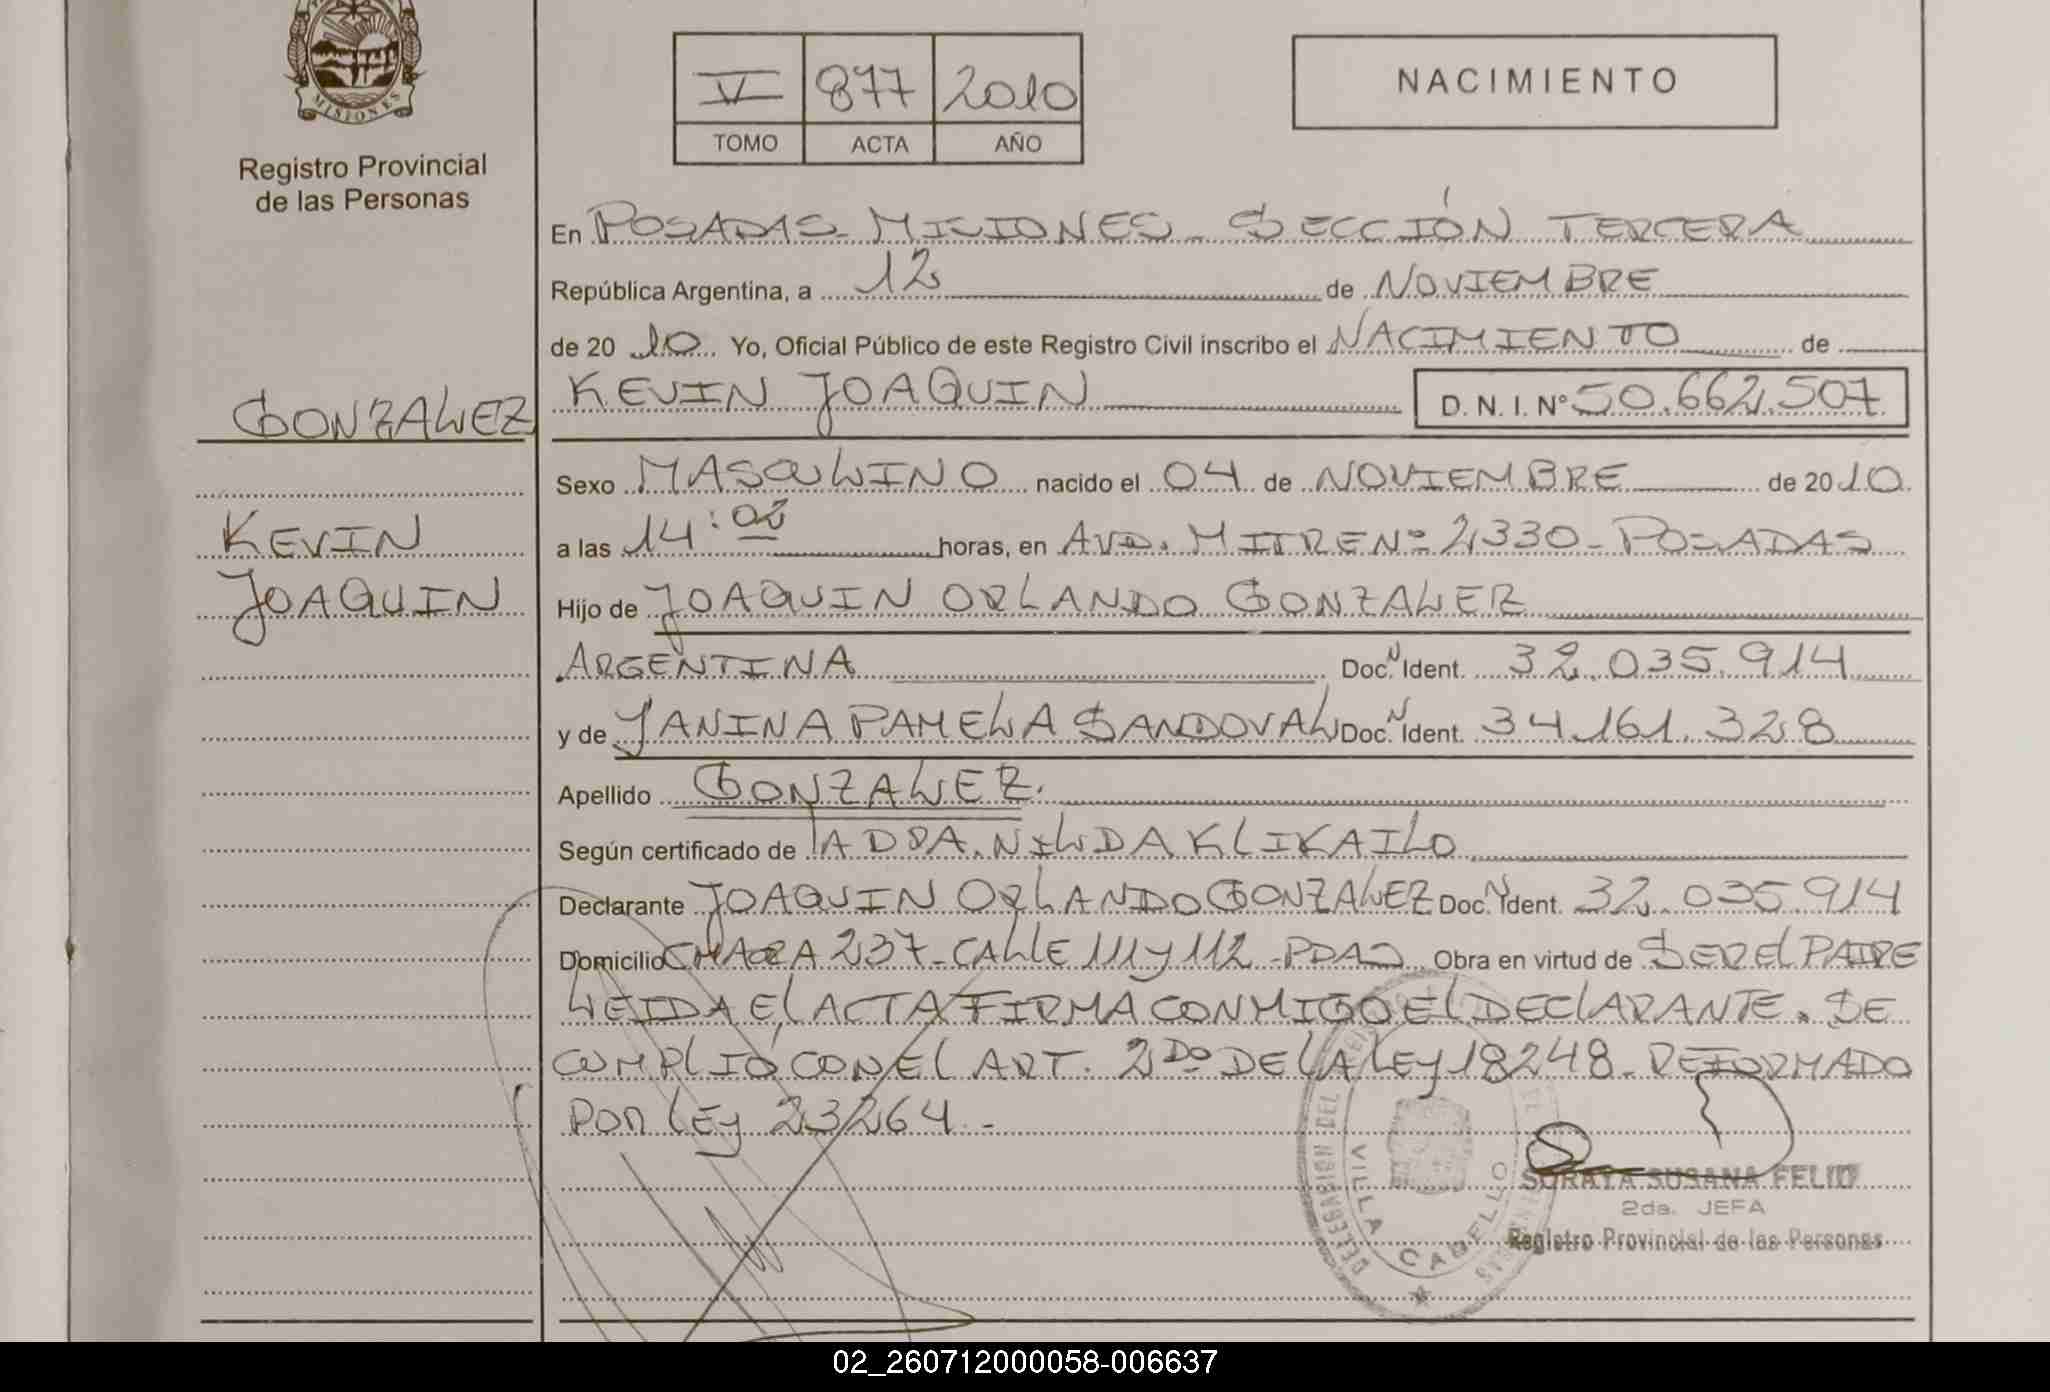 MISIONES
Registro Provincial
de las Personas
V 877 2010
TOMO ACTA AÑO
NACIMIENTO
En POSADAS - MISIONES - SECCIÓN TERCERA
República Argentina, a 12 de NOVIEMBRE
de 20 10 Yo, Oficial Público de este Registro Civil inscribo el NACIMIENTO de
GONZALEZ
KEVIN JOAQUIN D. N. I. Nº 50.662.507
Sexo MASCULINO nacido el 04 de NOVIEMBRE de 20 10
KEVIN
a las 14:02 horas, en AVD. MITRE Nº 2330 - POSADAS
JOAQUIN
Hijo de JOAQUIN ORLANDO GONZALEZ
ARGENTINA Doc. N Ident. 32.035.914
y de YANINA PAMELA SANDOVAL Doc. N Ident. 34.161.328
Apellido GONZALEZ.
Según certificado de LA DRA. NILDA KLIKAILO
Declarante JOAQUIN ORLANDO GONZALEZ Doc. N Ident. 32.035.914
Domicilio CHACRA 237 - CALLE 111 y 112 - PDAS Obra en virtud de SER EL PADRE
LEIDA EL ACTA FIRMA CONMIGO EL DECLARANTE. SE
CUMPLIÓ CON EL ART. 2DO DE LA LEY 18248 - REFORMADO
POR LEY 23264 -
VILLA CABELLO
SORAYA SUSANA FELIP
2da. JEFA
Registro Provincial de las Personas
02_260712000058-006637